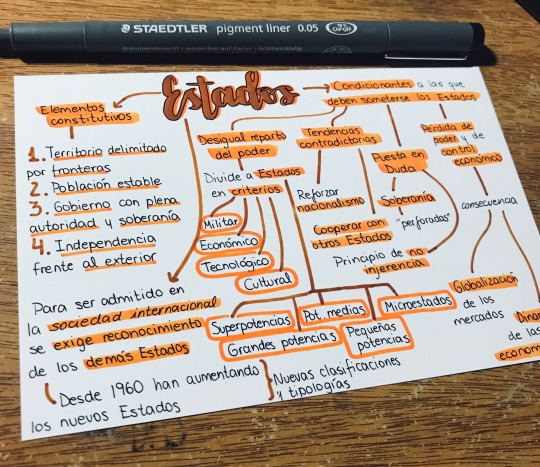 STAEDTLER pigment liner 0.05
CAP-OFF
dokumentenecht • wasserfest auf Papier • lichtbeständig
Estados
Elementos
constitutivos
1. Territorio delimitado
por fronteras
2. Población estable
3. Gobierno con plena
autoridad y soberanía
4. Independencia
frente al exterior
Para ser admitido en
la sociedad internacional
se exige reconocimiento
de los demás Estados
Desde 1960 han aumentando
los nuevos Estados
Nuevas clasificaciones
y tipologías
Condicionantes a las que
deben someterse los Estados
Desigual reparto
del poder
Divide a Estados
en criterios
Militar
Económico
Tecnológico
Cultural
Superpotencias
Pot. medias
Microestados
Grandes potencias
Pequeñas
potencias
Tendencias
contradictorias
Reforzar
nacionalismo
Cooperar con
otros Estados
Puesta en
Duda
Soberanía
"perforadas"
Principio de no
injerencia
Pérdida de
poder y de
control
económico
consecuencia
Globalización
de los
mercados
de las